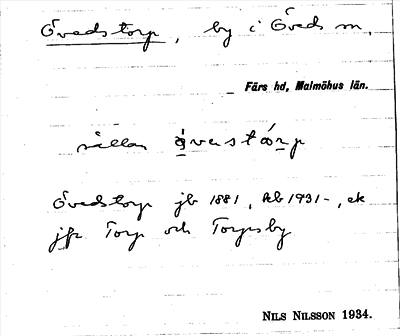 Övedstorp, by i Öveds sn,
Färs hd, Malmöhus län.
sällan
Övedstorp jb 1881, hb 1931-, ek
jfr Torp och Torpsby
NILS NILSSON 1934.